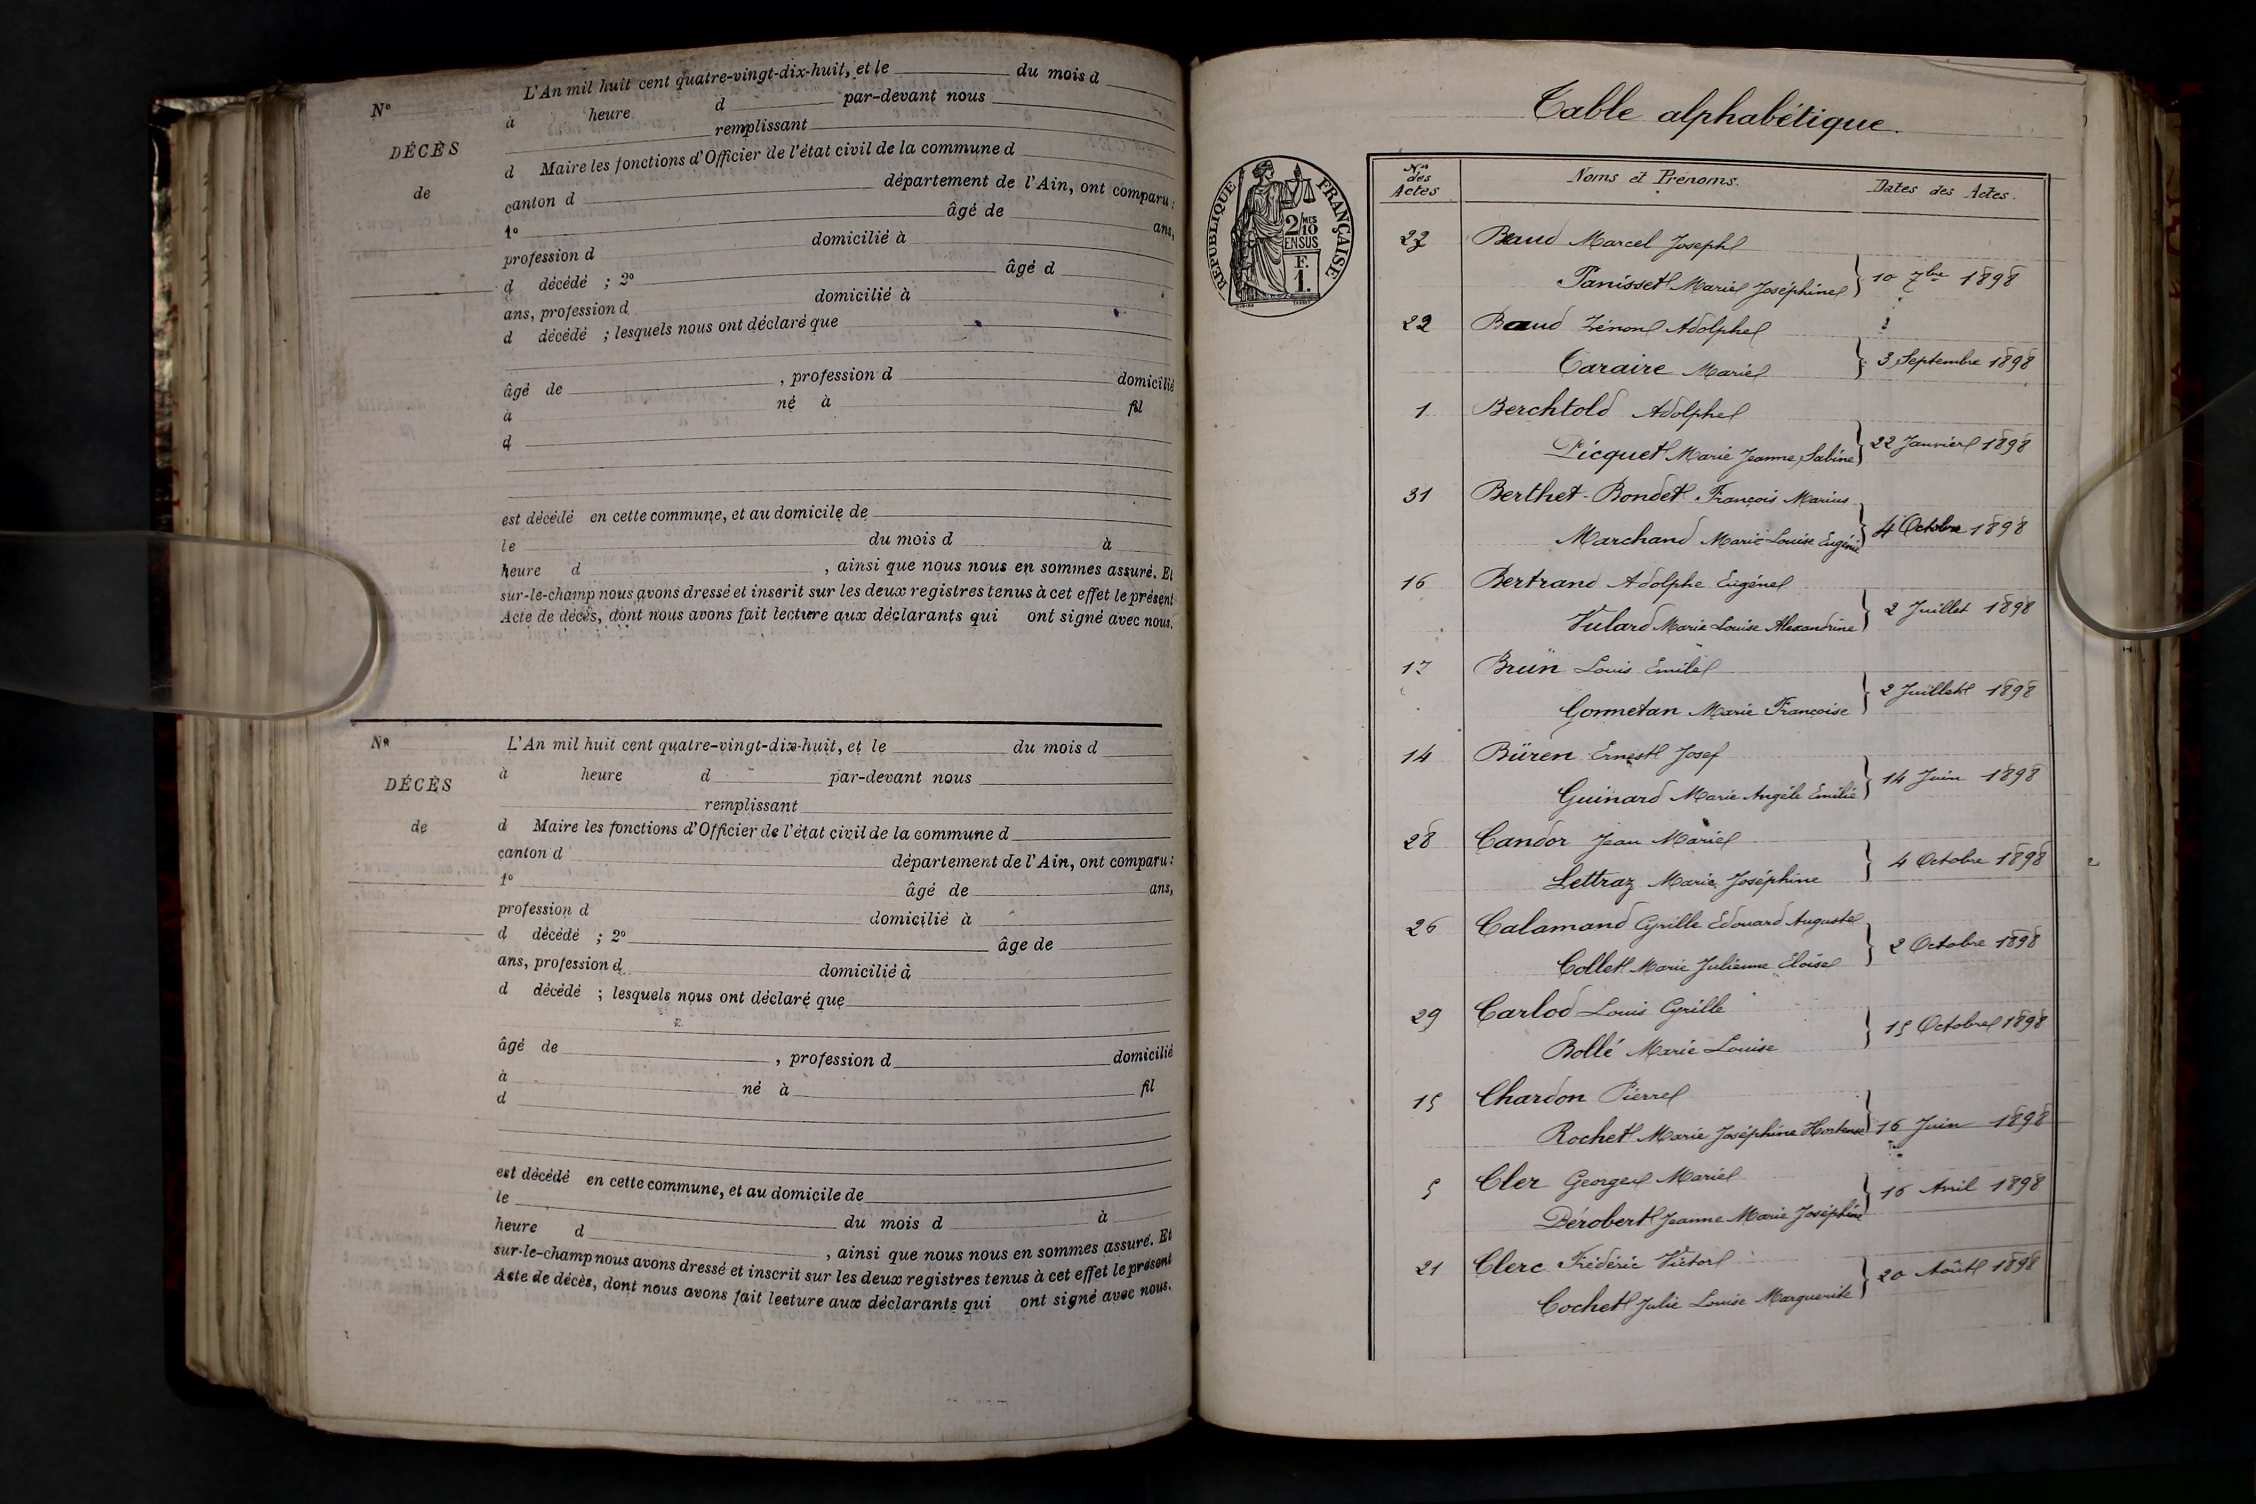 L'An mil huit cent quatre-vingt-dix-huit, et le du mois d
N° à heure d par-devant nous
remplissant
DÉCÈS d Maire les fonctions d'Officier de l'état civil de la commune d
de canton d département de l'Ain, ont comparu :
1° âgé de ans,
profession d domicilié à
d décédé ; 2° âgé d
ans, profession d domicilié à
d décédé ; lesquels nous ont déclaré que
âgé de , profession d domicilié
à né à fil
d
est décédé en cette commune, et au domicile de
le du mois d à
heure d , ainsi que nous nous en sommes assuré. Et
sur-le-champ nous avons dressé et inscrit sur les deux registres tenus à cet effet le présent
Acte de décès, dont nous avons fait lecture aux déclarants qui ont signé avec nous.
N° L'An mil huit cent quatre-vingt-dix-huit, et le du mois d
DÉCÈS à heure d par-devant nous
remplissant
de d Maire les fonctions d'Officier de l'état civil de la commune d
canton d département de l'Ain, ont comparu :
1° âgé de ans,
profession d domicilié à
d décédé ; 2° âge de
ans, profession d domicilié à
d décédé ; lesquels nous ont déclaré que
âgé de , profession d domicilié
à né à fil
d
est décédé en cette commune, et au domicile de
le du mois d à
heure d , ainsi que nous nous en sommes assuré. Et
sur-le-champ nous avons dressé et inscrit sur les deux registres tenus à cet effet le présent
Acte de décès, dont nous avons fait lecture aux déclarants qui ont signé avec nous.
Table alphabétique.
RÉPUBLIQUE FRANÇAISE
2/10 MES
EN SUS
F.
1.
Nos des Actes Noms et Prénoms. Dates des Actes.
Baud Marcel Joseph
Panisset Marie Joséphine } 10 7bre 1898
22 Baud Zénon Adolphe
Taraire Marie } 3 Septembre 1898
1 Berchtold Adolphe
Picquet Marie Jeanne Sabine } 22 Janvier 1898
31 Berthet-Bondet François Marius
Marchand Marie Louise Eugénie } 4 Octobre 1898
16 Bertrand Adolphe Eugène
Vulard Marie Louise Alexandrine } 2 Juillet 1898
17 Brün Louis Emile
Gonnetan Marie Françoise } 2 Juillet 1898
14 Büren Ernest Josef
Guinard Marie Angèle Emilie } 14 Juin 1898
28 Candor Jean Marie
Lettraz Marie Joséphine } 4 Octobre 1898
26 Calamand Cyrille Edouard Auguste
Collet Marie Julienne Éloïse } 2 Octobre 1898
29 Carlod Louis Cyrille
Bollé Marie Louise } 15 Octobre 1898
15 Chardon Pierre
Rochet Marie Joséphine Hortense } 16 Juin 1898
5 Cler Georges Marie
Dérobert Jeanne Marie Joséphine } 16 Avril 1898
21 Clerc Frédéric Victor
Cochet Julie Louise Marguerite } 20 Août 1898